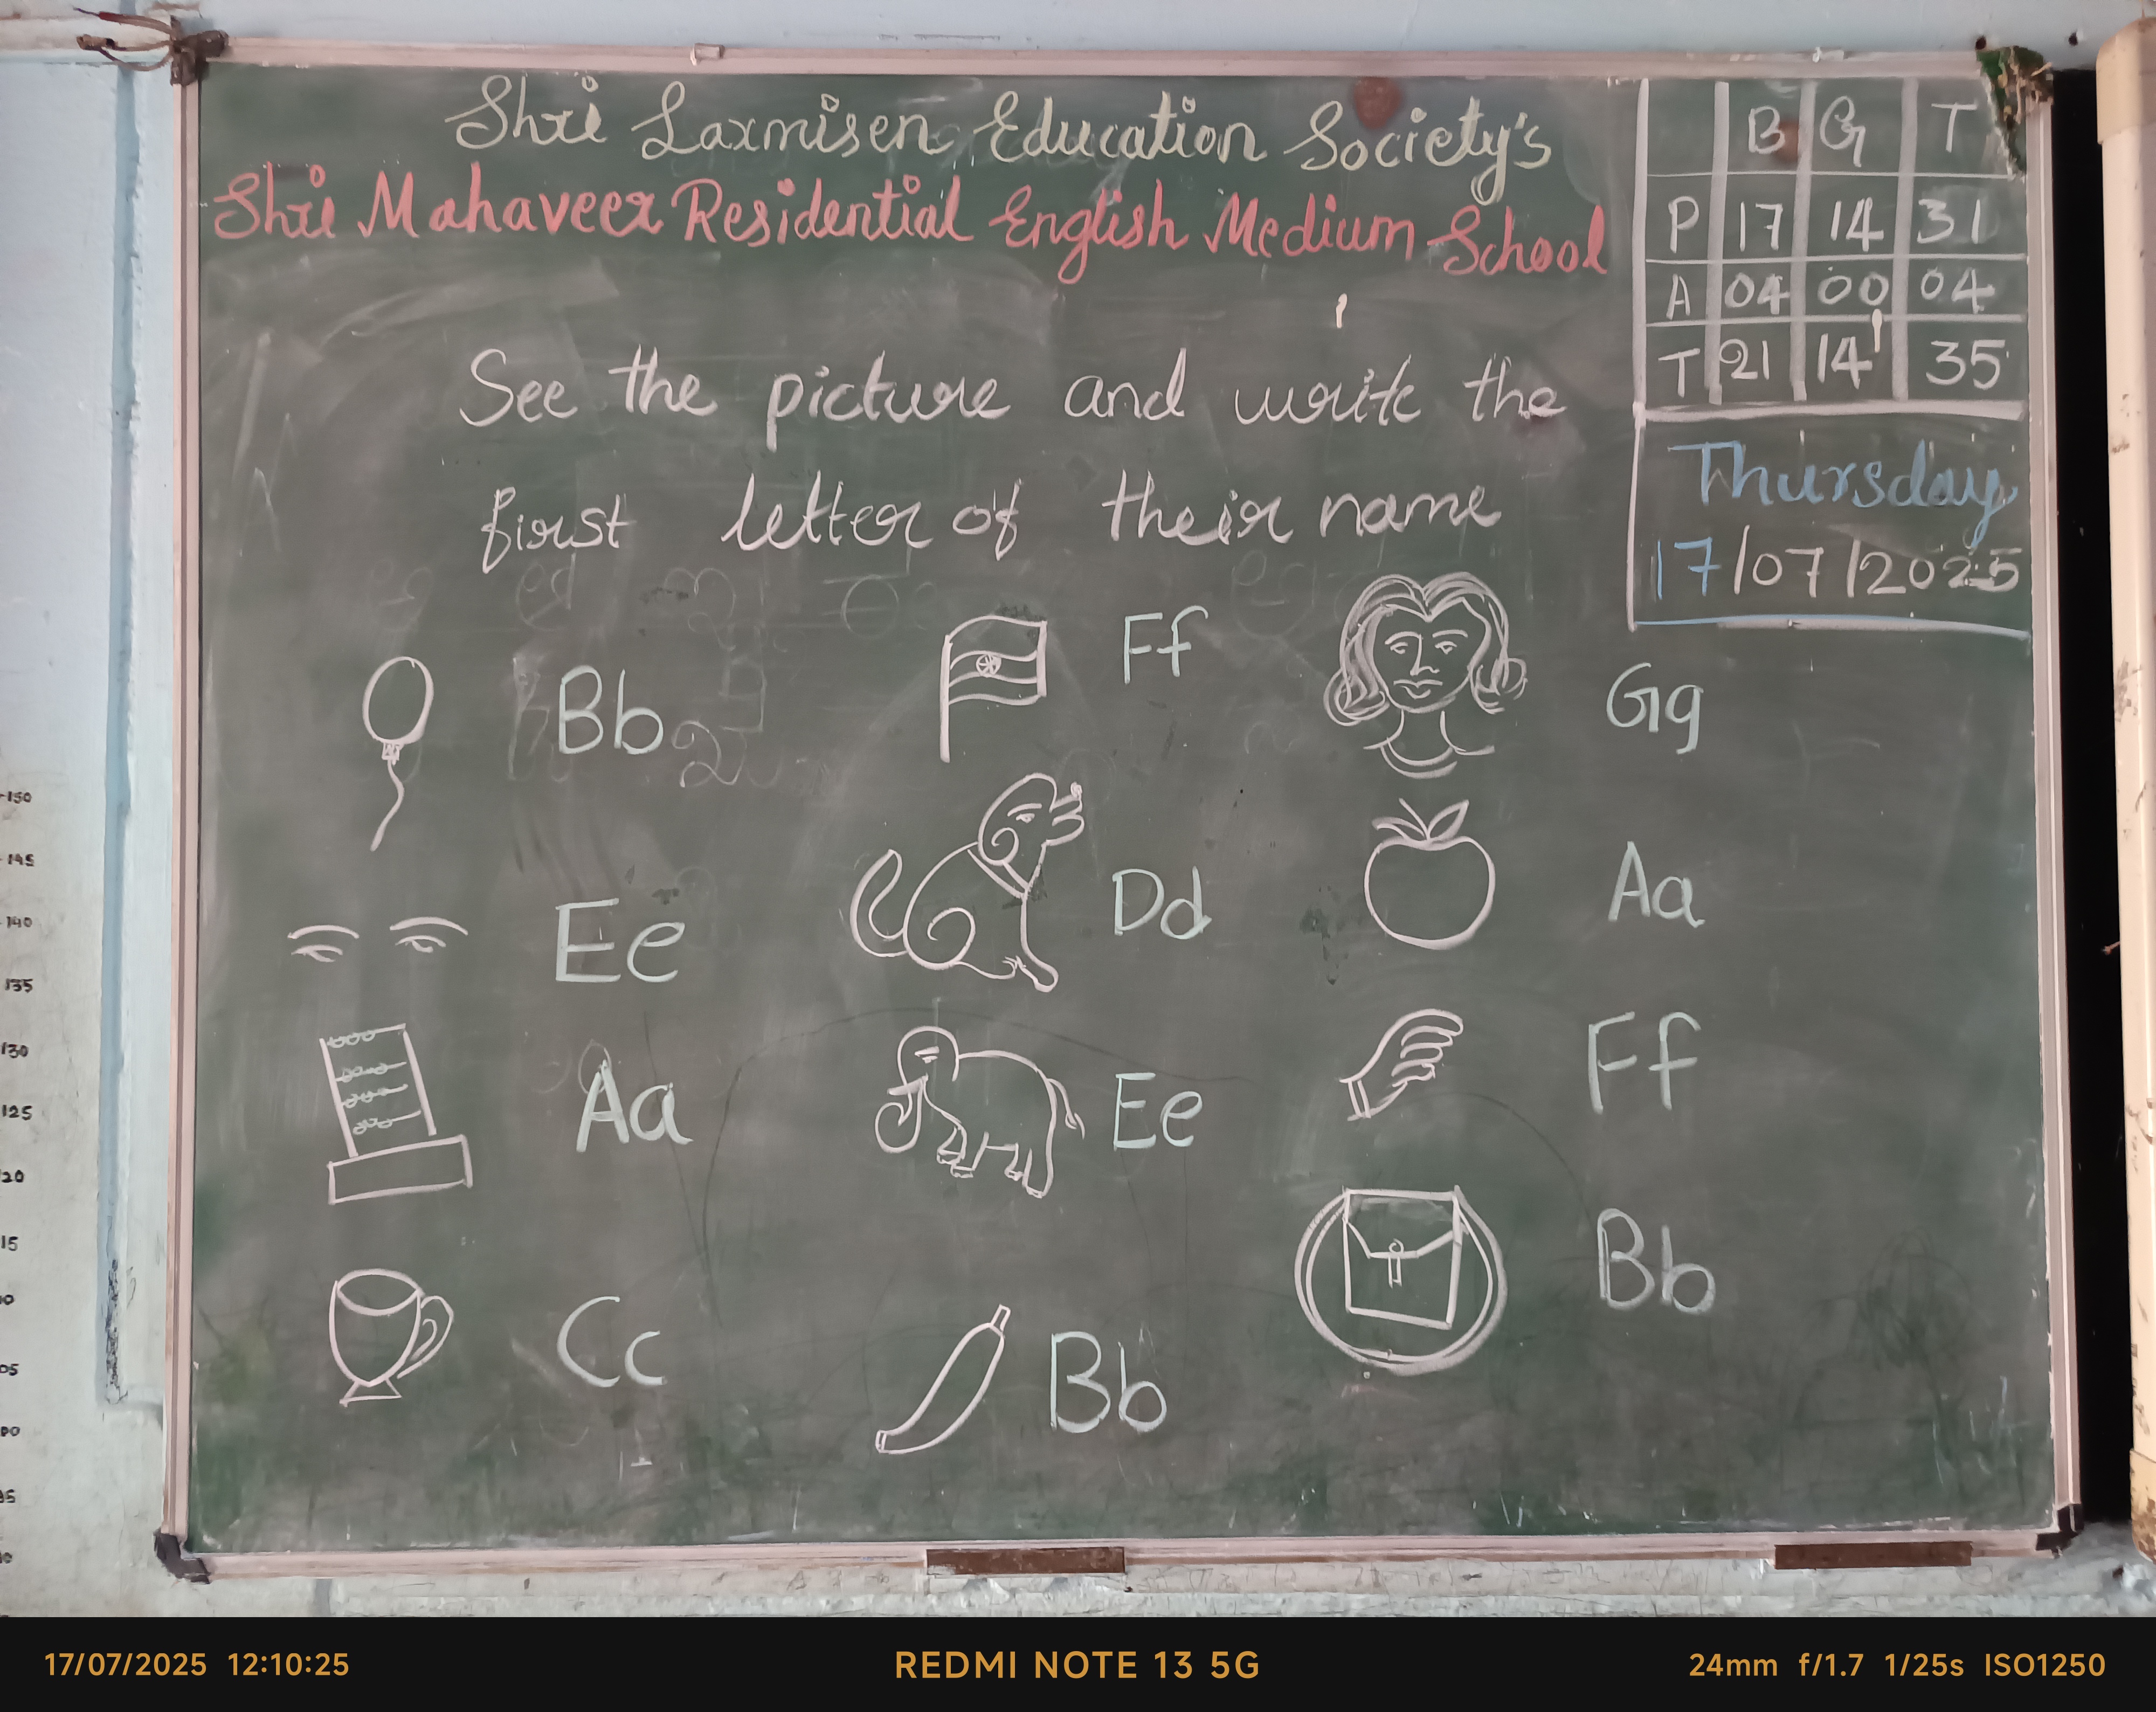 Shri Laxmisen Education Society's
Shri Mahaveer Residential English Medium School
B G T
P 17 14 31
A 04 00 04
T 21 14 35
Thursday
17/07/2025
See the picture and write the
first letter of their name
Bb Ff Gg
Ee Dd Aa
Aa Ee Ff
Cc Bb Bb
150
145
140
135
130
125
20
15
05
17/07/2025 12:10:25 REDMI NOTE 13 5G 24mm f/1.7 1/25s ISO1250